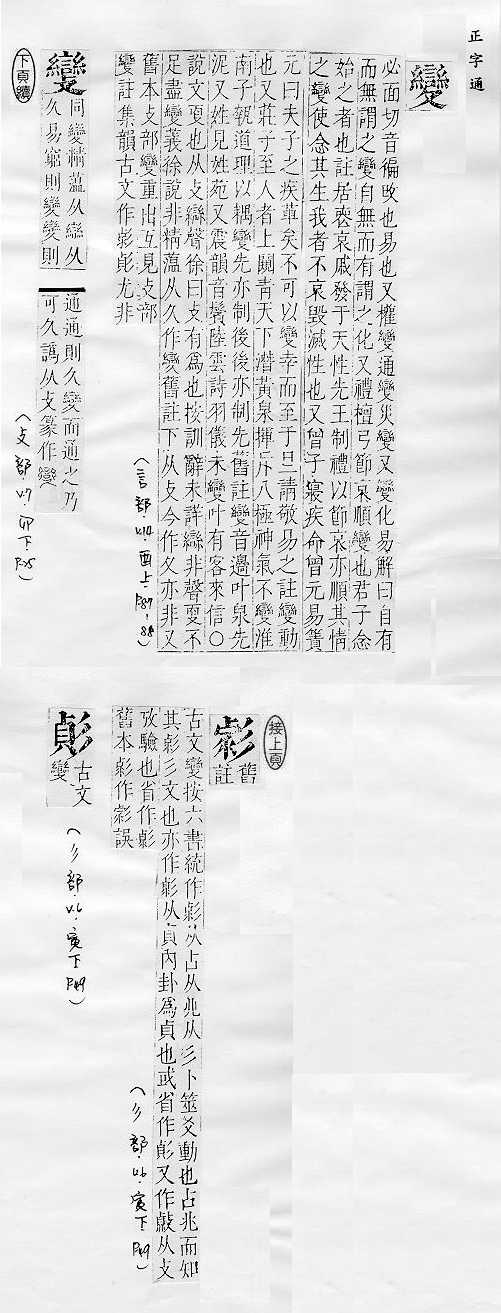 正字通
變
必面切音徧改也易也又權變通變災變又變化易解曰自有
而無謂之變自無而有謂之化又禮檀弓節哀順變也君子念
始之者也註居喪哀戚發于天性先王制禮以節哀亦順其情
之變使念其生我者不哀毀滅性也又曾子寢疾命曾元易簀
元曰夫子之疾革矣不可以變幸而至于旦請敬易之註變動
也又莊子至人者上闚青天下潛黃泉揮斥八極神氣不變淮
南子執道理以耦變先亦制後後亦制先舊註變音邊叶泉先
泥又姓見姓苑又震韻音鬢陸雲詩羽儀未變叶有客來信○
說文更也从攴䜌聲徐曰攴有為也按訓辭未詳䜌非聲更不
足盡變義徐說非精薀从久作變舊註下从攴今作夊亦非又
舊本攴部變重出互見攴部
變註集韻古文作彰尤非
(言部．v.14．酉上．P.87-88)
變
同變精薀从䜌从
久易窮則變變則
通通則久變而通之乃
可久譌从攴篆作變
(攴部．v.7．卯下．P.25)
下頁續
接上頁
舊
註
古文變按六書統作
从占从兆从彡卜筮爻動也占兆而知
其彡文也亦作
从貞內卦為貞也或省作
又作
从攴
攷驗也省作
舊本
作
誤
(彡部．v.6．寅下．P.49)
古文
變
(彡部．v.6．寅下．P.49)